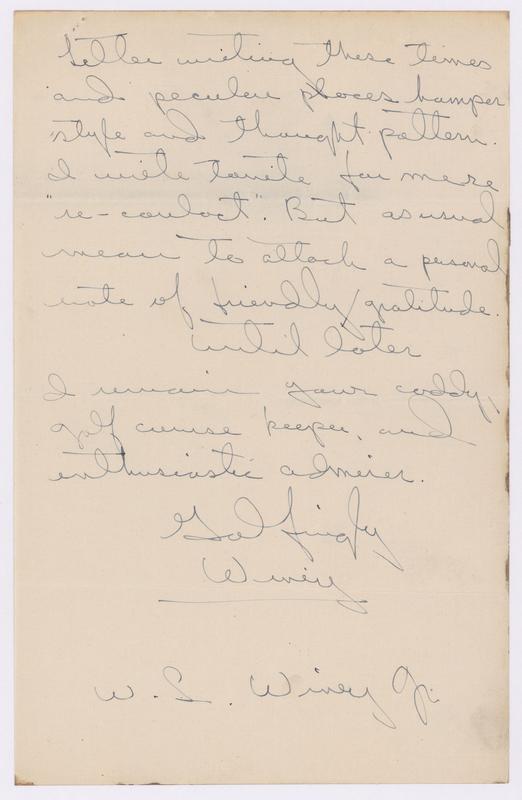 Letter writing these times
and peculiar places hamper
style and thought pattern.
I write tonite for mere
"re-contact". But as usual
mean to attach a personal
note of friendly gratitude.
Until later
I remain your caddy,
golf course keeper, and
enthusiastic admirer.
Golfingly
Winey
W. S. Winey Jr.